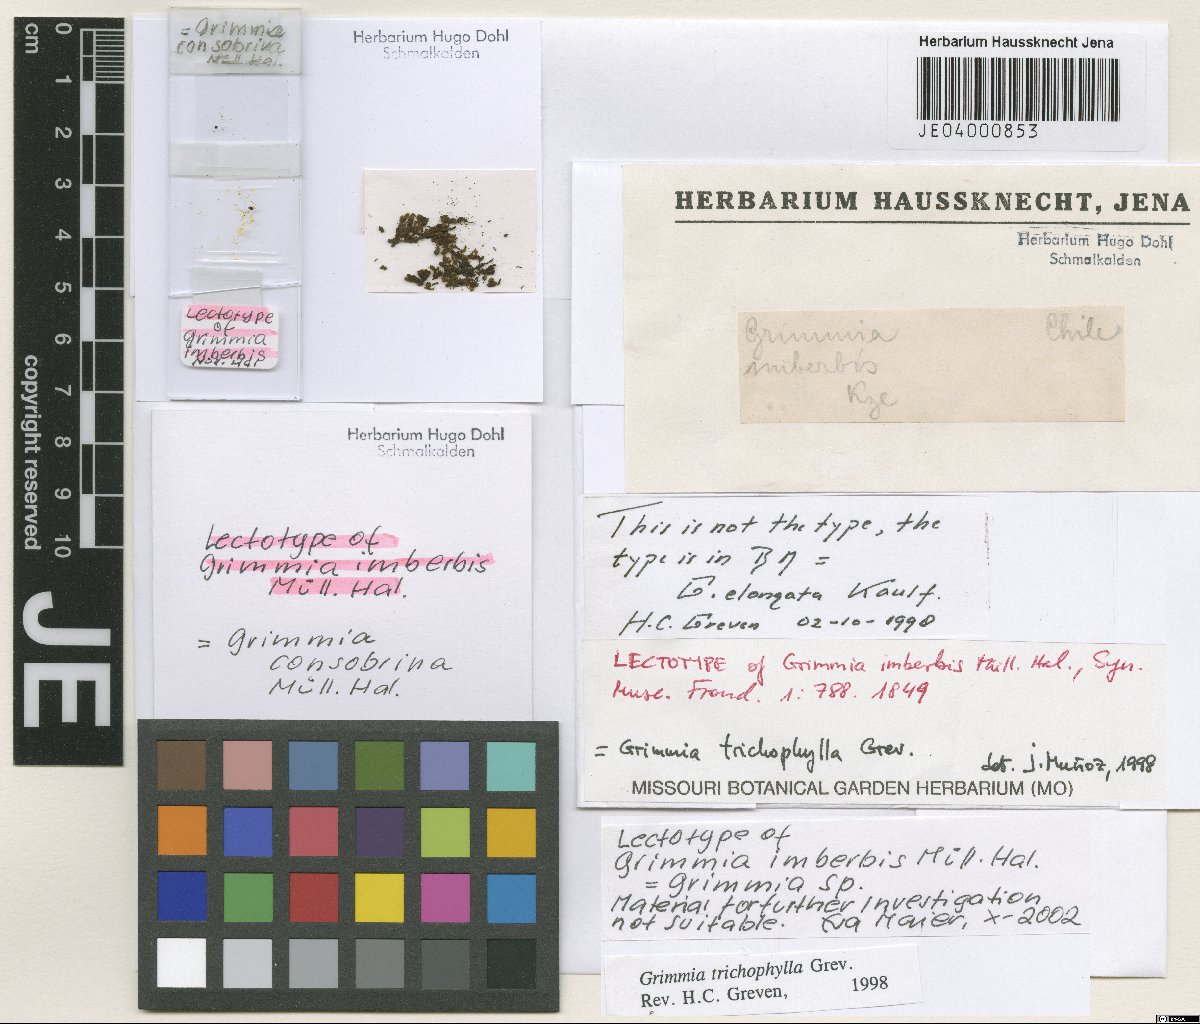 cm
0
1
2
3
4
5
6
7
8
9
10
copyright reserved
JE
= Grimmia
consobrina
Müll. Hal.
Lectotype
of
Grimmia
imberbis
Herbarium Hugo Dohl
Schmalkalden
Herbarium Haussknecht Jena
JE04000853
HERBARIUM HAUSSKNECHT, JENA
Herbarium Hugo Dohl
Schmalkalden
Grimmia Chile
imberbis
Kze
Herbarium Hugo Dohl
Schmalkalden
Lectotype of
Grimmia imberbis
Müll. Hal.
= Grimmia
consobrina
Müll. Hal.
This is not the type, the
type is in BM =
G. elongata Kaulf.
H.C. Greven 02-10-1998
LECTOTYPE of Grimmia imberbis Müll. Hal., Syn.
Musc. Frond. 1: 788. 1849
= Grimmia trichophylla Grev.
det. J. Muñoz, 1998
MISSOURI BOTANICAL GARDEN HERBARIUM (MO)
Lectotype of
Grimmia imberbis Müll. Hal.
= Grimmia sp.
Material for further investigation
not suitable. Eva Maier, X-2002
Grimmia trichophylla Grev.
Rev. H.C. Greven, 1998